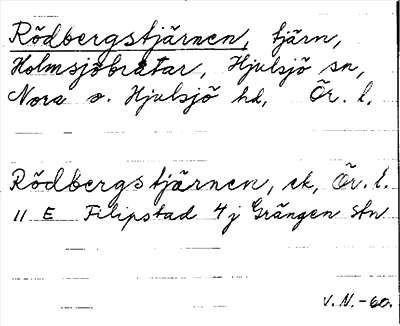 Rödbergstjärnen, tjärn,
Holmsjöbråtar, Hjulsjö sn,
Nora o. Hjulsjö hd, Ör. l.
Rödbergstjärnen, ek, Ör. l.
11 E Filipstad 4j Grängen Stn
V. N. -60.